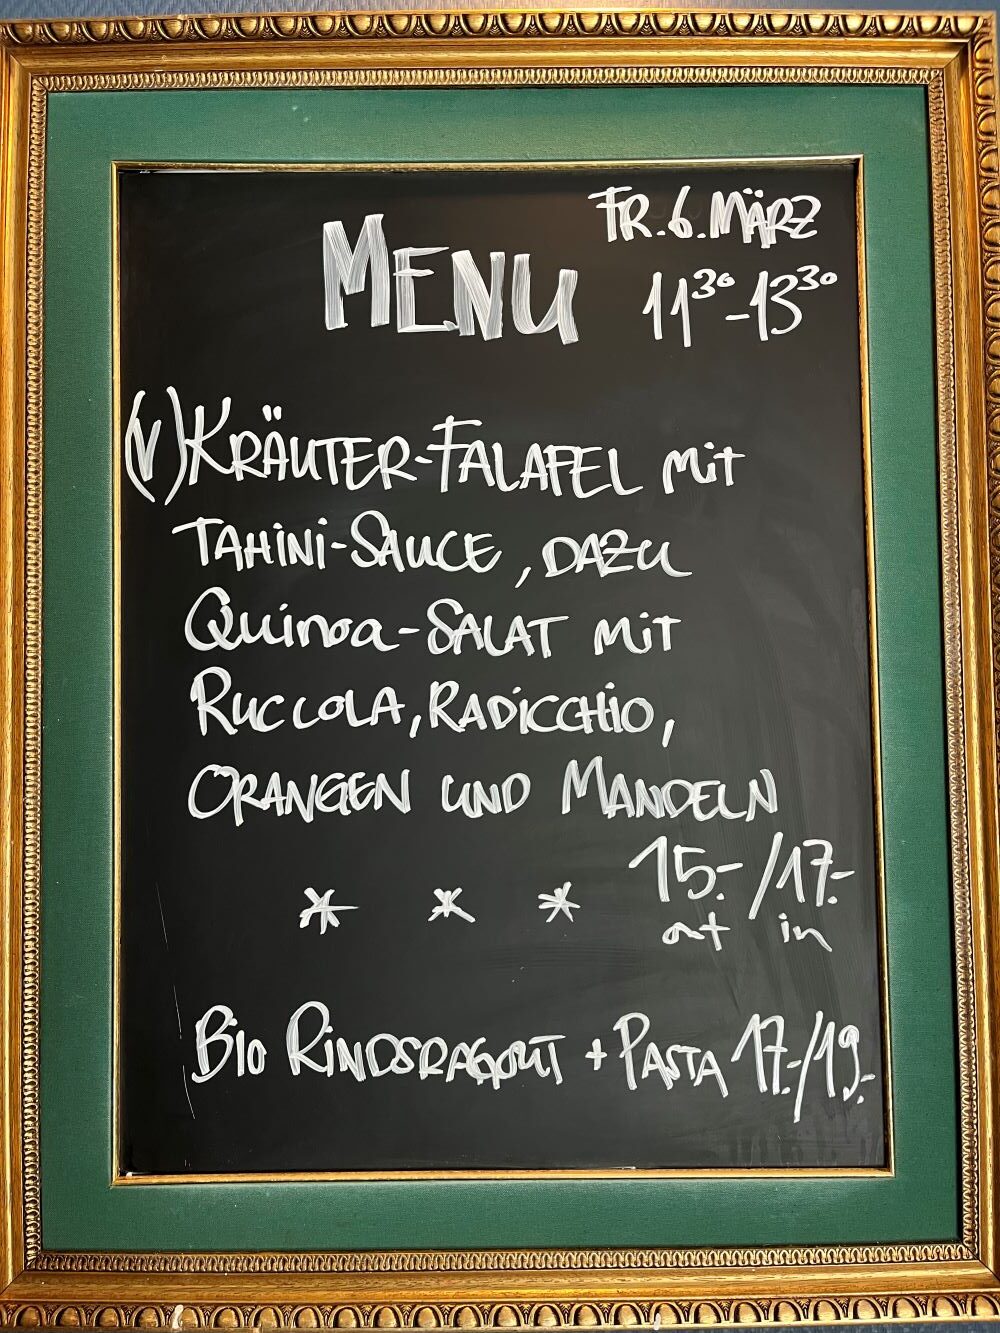 FR. 6. MÄRZ
MENU
11³⁰-13³⁰
(V) KRÄUTER-FALAFEL MIT
TAHINI-SAUCE, DAZU
QUINOA-SALAT MIT
RUCCOLA, RADICCHIO,
ORANGEN UND MANDELN
15.-/17.-
* * *
out in
BIO RINDSRAGOUT + PASTA 17.-/19.-